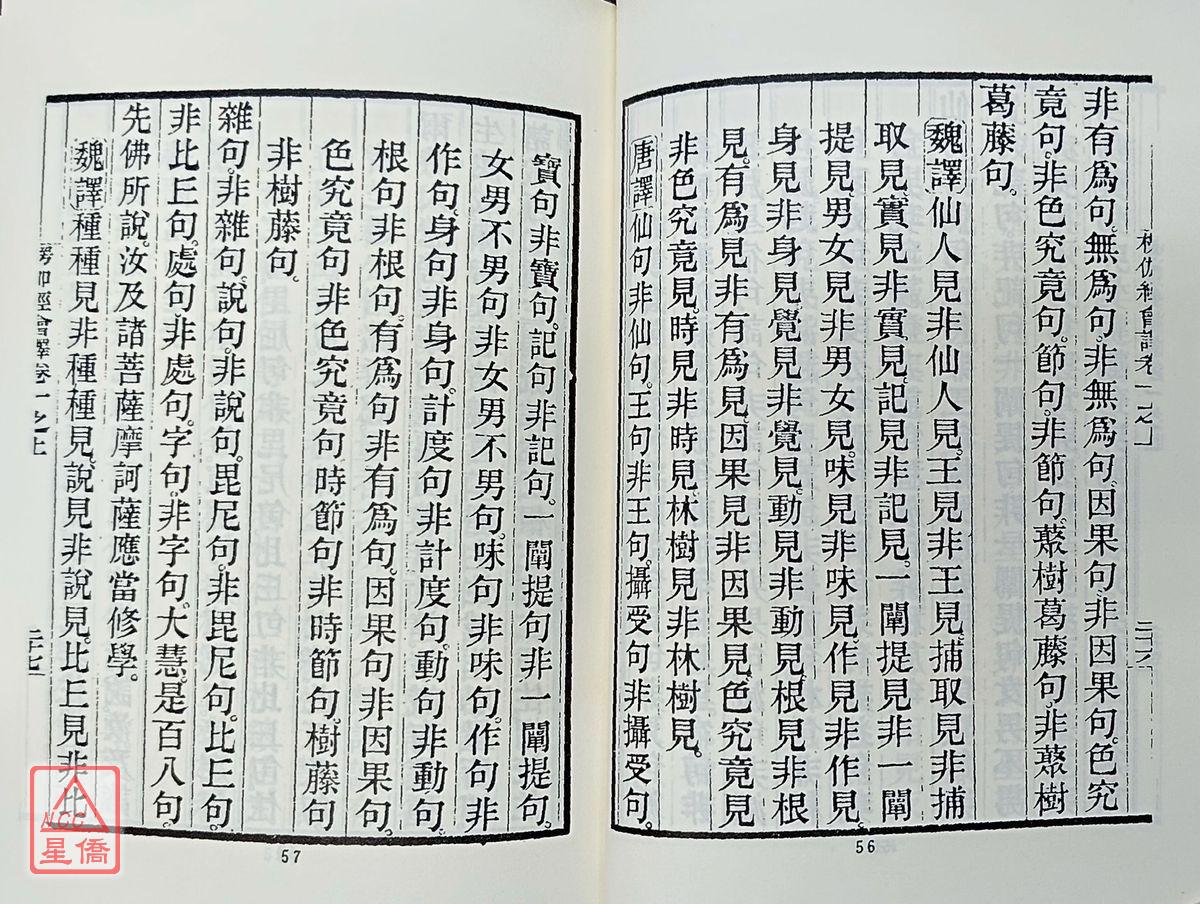 非有為句。無為句。非無為句。因果句。非因果句。色究
竟句。非色究竟句。節句。非節句。藂樹葛藤句。非藂樹
葛藤句。
魏譯仙人見非仙人見。王見非王見。捕取見非捕
取見。實見非實見。記見非記見。一闡提見非一闡
提見。男女見非男女見。味見非味見。作見非作見。
身見非身見。覺見非覺見。動見非動見。根見非根
見。有為見非有為見。因果見非因果見。色究竟見
非色究竟見。時見非時見。林樹見非林樹見。
唐譯仙句非仙句。王句非王句。攝受句非攝受句。
56
寶句非寶句。記句非記句。一闡提句非一闡提句。
女男不男句非女男不男句。味句非味句。作句非
作句。身句非身句。計度句非計度句。動句非動句。
根句非根句。有為句非有為句。因果句非因果句。
色究竟句非色究竟句。時節句非時節句。樹藤句
非樹藤句。
雜句。非雜句。說句。非說句。毘尼句。非毘尼句。比丘句。
非比丘句。處句。非處句。字句。非字句。大慧。是百八句。
先佛所說。汝及諸菩薩摩訶薩應當修學。
魏譯種種見非種種見。說見非說見。比丘見非比
楞伽經會譯卷一之上
二十七
57
NCC
星僑